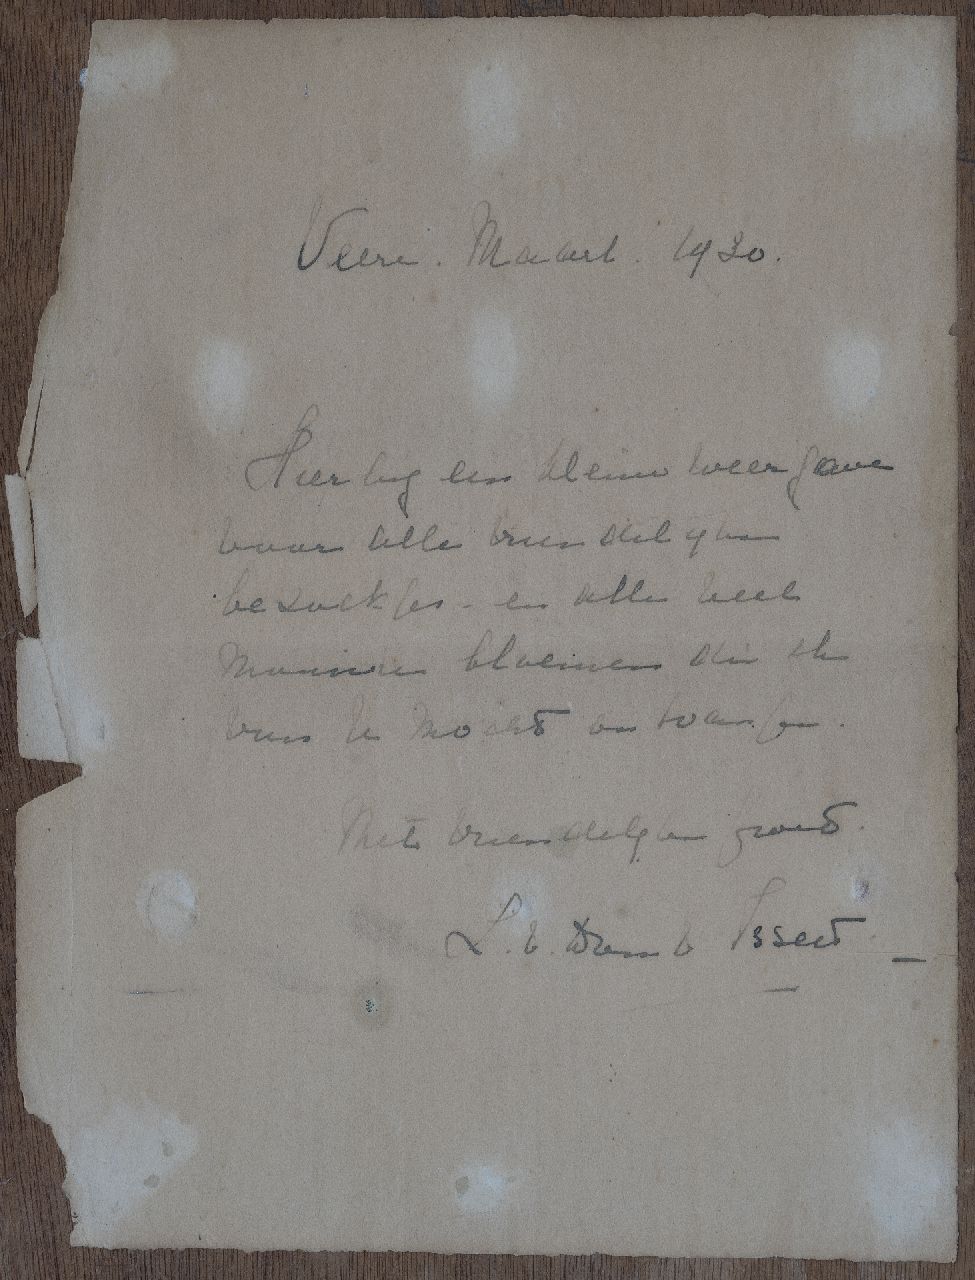 Veere. Maart. 1930.
Hierbij een kleine weergave
voor alle vriendelijke
bezoekjes - en alle veel
mooie bloemen die ik
van U mocht ontvangen.
Met vriendelijken groet.
L. v. Dam v Isselt.